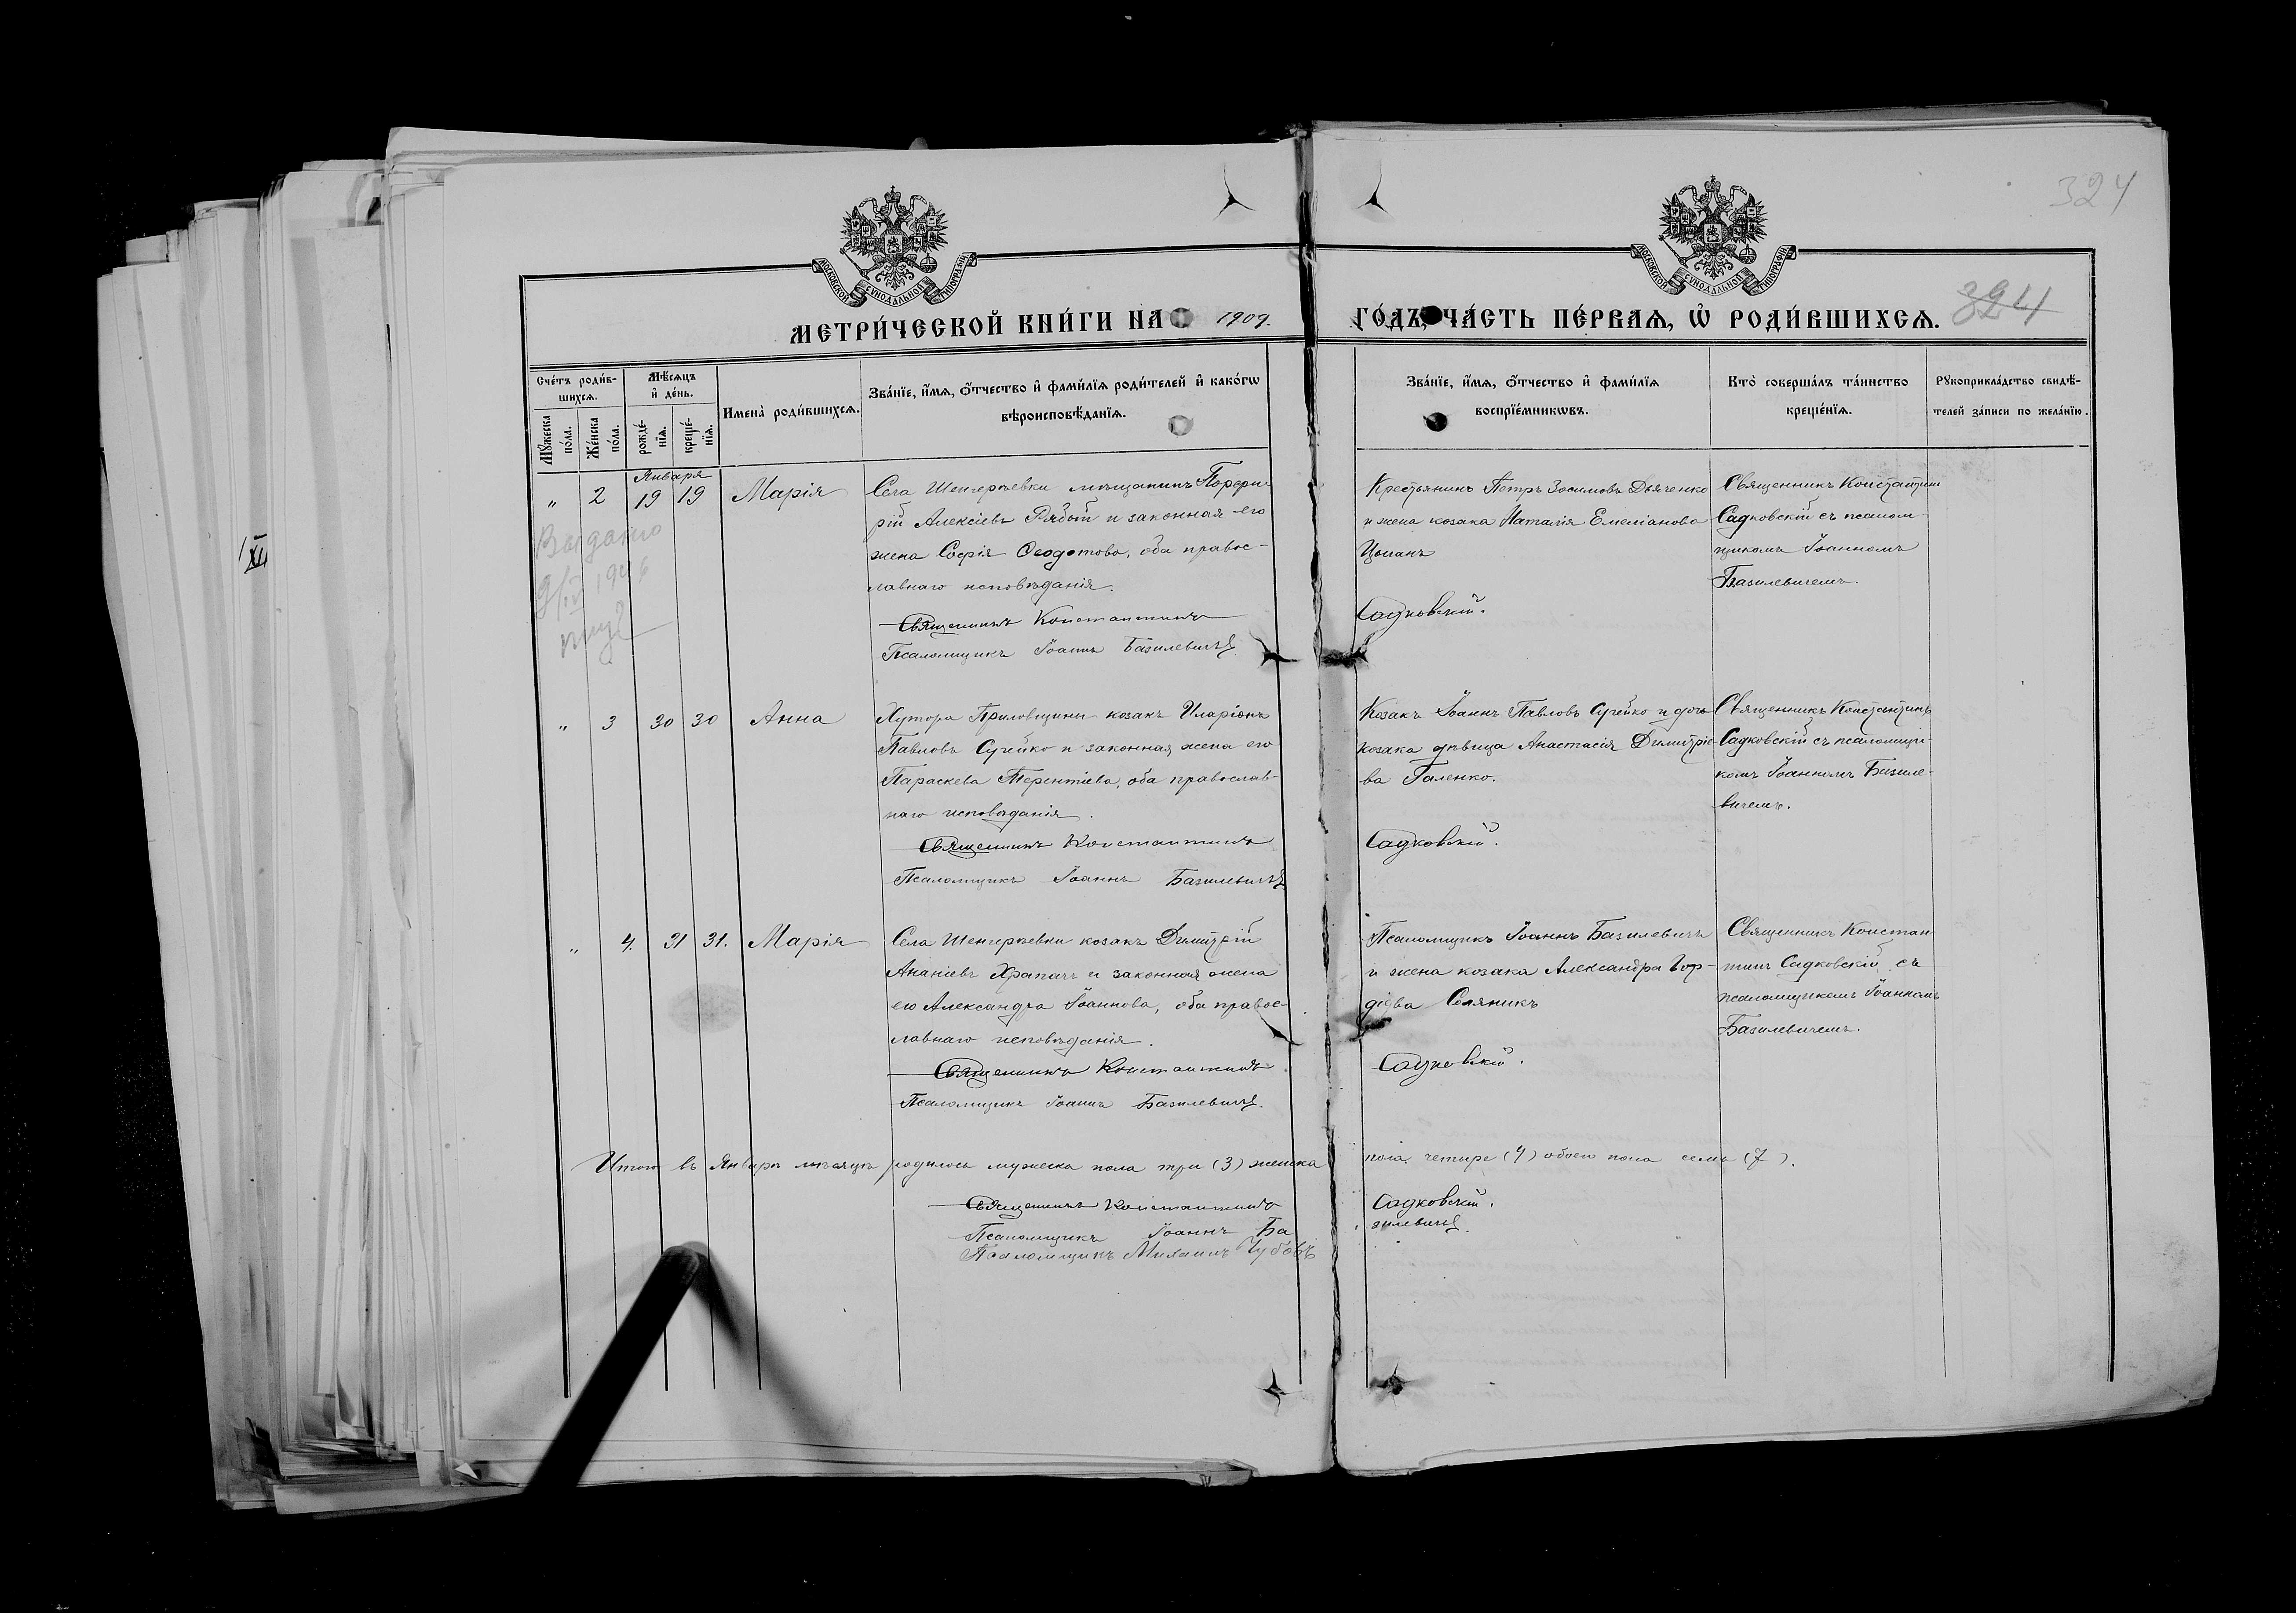 324
МОСКОВСКОЙ СѴНОДАЛЬНОЙ ТИПОГРАФІИ
МОСКОВСКОЙ СѴНОДАЛЬНОЙ ТИПОГРАФІИ
МЕТРИ́ЧЕСКОЙ КНИ́ГИ НА 1909. ГО́ДЪ, ЧА́СТЬ ПЕ́РВАѦ, Ѡ РОДИ́ВШИХСѦ. 324
Сче́тъ роди́в-
шихсѧ.
Мѣ́сѧцъ
и҆ де́нь.
Мꙋ́жеска по́ла.
Же́нска по́ла.
рожде́-
нїѧ.
креще́-
нїѧ.
Имена̀ роди́вшихсѧ.
Зва́нїе, и҆́мѧ, ѻ҆́тчество и҆ фами́лїѧ роди́телей и҆ како́гѡ
вѣроисповѣ́данїѧ.
Зва́нїе, и҆́мѧ, ѻ҆́тчество и҆ фами́лїѧ
воспрїе́мникѡвъ.
Кто̀ соверша́лъ та́инство
креще́нїѧ.
Рꙋкоприкла́дство свидѣ́-
телей за́писи по жела́нїю.
Января
" 2 19 19 Марія
Села Шенгерѣевки мѣщанинъ Порфи-
рій Алексіевъ Рябой и законная его
жена Софія Ѳеодотова, оба правос-
лавнаго исповѣданія.
Священникъ Константинъ
Псаломщикъ Іоаннъ Базилевичъ
Крестьянинъ Петръ Зосимовъ Дьяченко
и жена козака Наталія Емеліанова
Цыганъ
Садковскій.
Священникъ Константинъ
Садковскій съ псалом-
щикомъ Іоанномъ
Базилевичемъ.
Выдано
9/IV 1946
" 3 30 30 Анна
Хутора Приловщины козакъ Иларіонъ
Павловъ Сугейко и законная жена его
Параскева Терентіева, оба православ-
наго исповѣданія.
Священникъ Константинъ
Псаломщикъ Іоаннъ Базилевичъ
Козакъ Іоаннъ Павловъ Сугейко и дочь
козака дѣвица Анастасія Димитріе-
ва Галенко.
Садковскій.
Священникъ Константинъ
Садковскій съ псаломщи-
комъ Іоанномъ Базиле-
вичемъ.
" 4. 31 31. Марія
Села Шенгерѣевки козакъ Димитрій
Ананіевъ Храпачъ и законная жена
его Александра Іоаннова, оба правос-
лавнаго исповѣданія.
Священникъ Константинъ
Псаломщикъ Іоаннъ Базилевичъ
Псаломщикъ Іоаннъ Базилевичъ
и жена козака Александра Гор-
діева Соляникъ
Садковскій.
Священникъ Констан-
тинъ Садковскій съ
псаломщикомъ Іоанномъ
Базилевичемъ.
Итого въ Январѣ мѣсяцѣ родилось мужеска пола три (3) женска пола четыре (4) обоего пола семь (7).
Священникъ Константинъ Садковскій.
Псаломщикъ Іоаннъ Базилевичъ
Псаломщикъ Михаилъ Чубовъ
1/XII